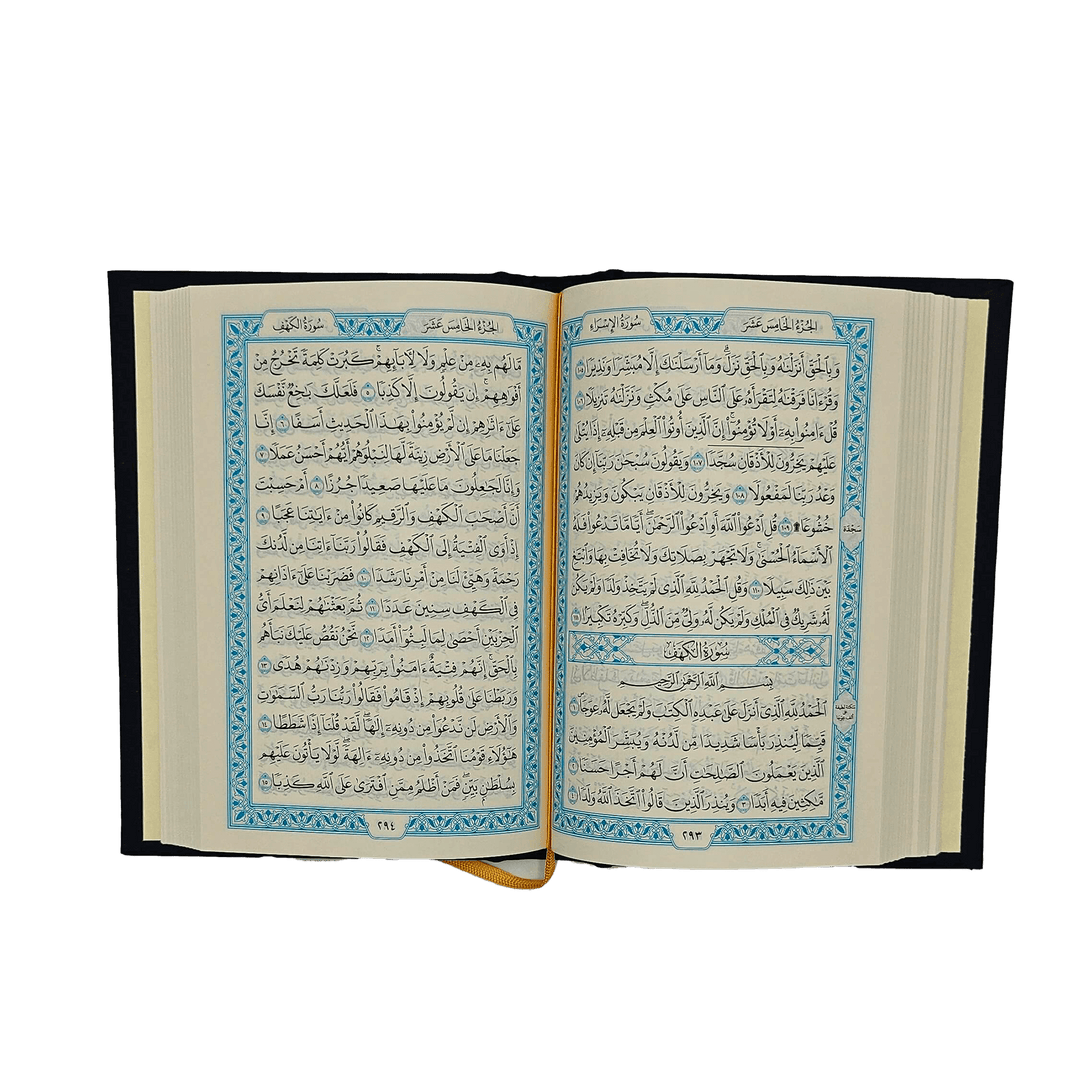 الجُزْءُ الخَامِسَ عَشَرَ
سُورَةُ الإِسْرَاءِ
وَبِٱلْحَقِّ أَنزَلْنَٰهُ وَبِٱلْحَقِّ نَزَلَۗ وَمَآ أَرْسَلْنَٰكَ إِلَّا مُبَشِّرًا وَنَذِيرًا ١٠٥
وَقُرْءَانًا فَرَقْنَٰهُ لِتَقْرَأَهُۥ عَلَى ٱلنَّاسِ عَلَىٰ مُكْثٍ وَنَزَّلْنَٰهُ تَنزِيلًا ١٠٦
قُلْ ءَامِنُوا۟ بِهِۦٓ أَوْ لَا تُؤْمِنُوٓا۟ۚ إِنَّ ٱلَّذِينَ أُوتُوا۟ ٱلْعِلْمَ مِن قَبْلِهِۦٓ إِذَا يُتْلَىٰ
عَلَيْهِمْ يَخِرُّونَ لِلْأَذْقَانِ سُجَّدًا ١٠٧ وَيَقُولُونَ سُبْحَٰنَ رَبِّنَآ إِن كَانَ
وَعْدُ رَبِّنَا لَمَفْعُولًا ١٠٨ وَيَخِرُّونَ لِلْأَذْقَانِ يَبْكُونَ وَيَزِيدُهُمْ
خُشُوعًا۩ ١٠٩ قُلِ ٱدْعُوا۟ ٱللَّهَ أَوِ ٱدْعُوا۟ ٱلرَّحْمَٰنَۖ أَيًّا مَّا تَدْعُوا۟ فَلَهُ
ٱلْأَسْمَآءُ ٱلْحُسْنَىٰۚ وَلَا تَجْهَرْ بِصَلَاتِكَ وَلَا تُخَافِتْ بِهَا وَٱبْتَغِ
بَيْنَ ذَٰلِكَ سَبِيلًا ١١٠ وَقُلِ ٱلْحَمْدُ لِلَّهِ ٱلَّذِى لَمْ يَتَّخِذْ وَلَدًا وَلَمْ يَكُن
لَّهُۥ شَرِيكٌ فِى ٱلْمُلْكِ وَلَمْ يَكُن لَّهُۥ وَلِىٌّ مِّنَ ٱلذُّلِّۖ وَكَبِّرْهُ تَكْبِيرًۢا ١١١
سُورَةُ الكَهْفِ
بِسْمِ ٱللَّهِ ٱلرَّحْمَٰنِ ٱلرَّحِيمِ
ٱلْحَمْدُ لِلَّهِ ٱلَّذِىٓ أَنزَلَ عَلَىٰ عَبْدِهِ ٱلْكِتَٰبَ وَلَمْ يَجْعَل لَّهُۥ عِوَجَاۜ ١
قَيِّمًا لِّيُنذِرَ بَأْسًا شَدِيدًا مِّن لَّدُنْهُ وَيُبَشِّرَ ٱلْمُؤْمِنِينَ
ٱلَّذِينَ يَعْمَلُونَ ٱلصَّٰلِحَٰتِ أَنَّ لَهُمْ أَجْرًا حَسَنًا ٢
مَّٰكِثِينَ فِيهِ أَبَدًا ٣ وَيُنذِرَ ٱلَّذِينَ قَالُوا۟ ٱتَّخَذَ ٱللَّهُ وَلَدًا ٤
سَجْدَة
٢٩٣
الجُزْءُ الخَامِسَ عَشَرَ
سُورَةُ الكَهْفِ
مَّا لَهُم بِهِۦ مِنْ عِلْمٍ وَلَا لِـَٔابَآئِهِمْۚ كَبُرَتْ كَلِمَةً تَخْرُجُ مِنْ
أَفْوَٰهِهِمْۚ إِن يَقُولُونَ إِلَّا كَذِبًا ٥ فَلَعَلَّكَ بَٰخِعٌ نَّفْسَكَ
عَلَىٰٓ ءَاثَٰرِهِمْ إِن لَّمْ يُؤْمِنُوا۟ بِهَٰذَا ٱلْحَدِيثِ أَسَفًا ٦ إِنَّا
جَعَلْنَا مَا عَلَى ٱلْأَرْضِ زِينَةً لَّهَا لِنَبْلُوَهُمْ أَيُّهُمْ أَحْسَنُ عَمَلًا ٧
وَإِنَّا لَجَٰعِلُونَ مَا عَلَيْهَا صَعِيدًا جُرُزًا ٨ أَمْ حَسِبْتَ
أَنَّ أَصْحَٰبَ ٱلْكَهْفِ وَٱلرَّقِيمِ كَانُوا۟ مِنْ ءَايَٰتِنَا عَجَبًا ٩
إِذْ أَوَى ٱلْفِتْيَةُ إِلَى ٱلْكَهْفِ فَقَالُوا۟ رَبَّنَآ ءَاتِنَا مِن لَّدُنكَ
رَحْمَةً وَهَيِّئْ لَنَا مِنْ أَمْرِنَا رَشَدًا ١٠ فَضَرَبْنَا عَلَىٰٓ ءَاذَانِهِمْ
فِى ٱلْكَهْفِ سِنِينَ عَدَدًا ١١ ثُمَّ بَعَثْنَٰهُمْ لِنَعْلَمَ أَىُّ
ٱلْحِزْبَيْنِ أَحْصَىٰ لِمَا لَبِثُوٓا۟ أَمَدًا ١٢ نَّحْنُ نَقُصُّ عَلَيْكَ نَبَأَهُم
بِٱلْحَقِّۚ إِنَّهُمْ فِتْيَةٌ ءَامَنُوا۟ بِرَبِّهِمْ وَزِدْنَٰهُمْ هُدًى ١٣
وَرَبَطْنَا عَلَىٰ قُلُوبِهِمْ إِذْ قَامُوا۟ فَقَالُوا۟ رَبُّنَا رَبُّ ٱلسَّمَٰوَٰتِ
وَٱلْأَرْضِ لَن نَّدْعُوَا۟ مِن دُونِهِۦٓ إِلَٰهًاۖ لَّقَدْ قُلْنَآ إِذًا شَطَطًا ١٤
هَٰٓؤُلَآءِ قَوْمُنَا ٱتَّخَذُوا۟ مِن دُونِهِۦٓ ءَالِهَةًۖ لَّوْلَا يَأْتُونَ عَلَيْهِم
بِسُلْطَٰنٍۭ بَيِّنٍۖ فَمَنْ أَظْلَمُ مِمَّنِ ٱفْتَرَىٰ عَلَى ٱللَّهِ كَذِبًا ١٥
٢٩٤